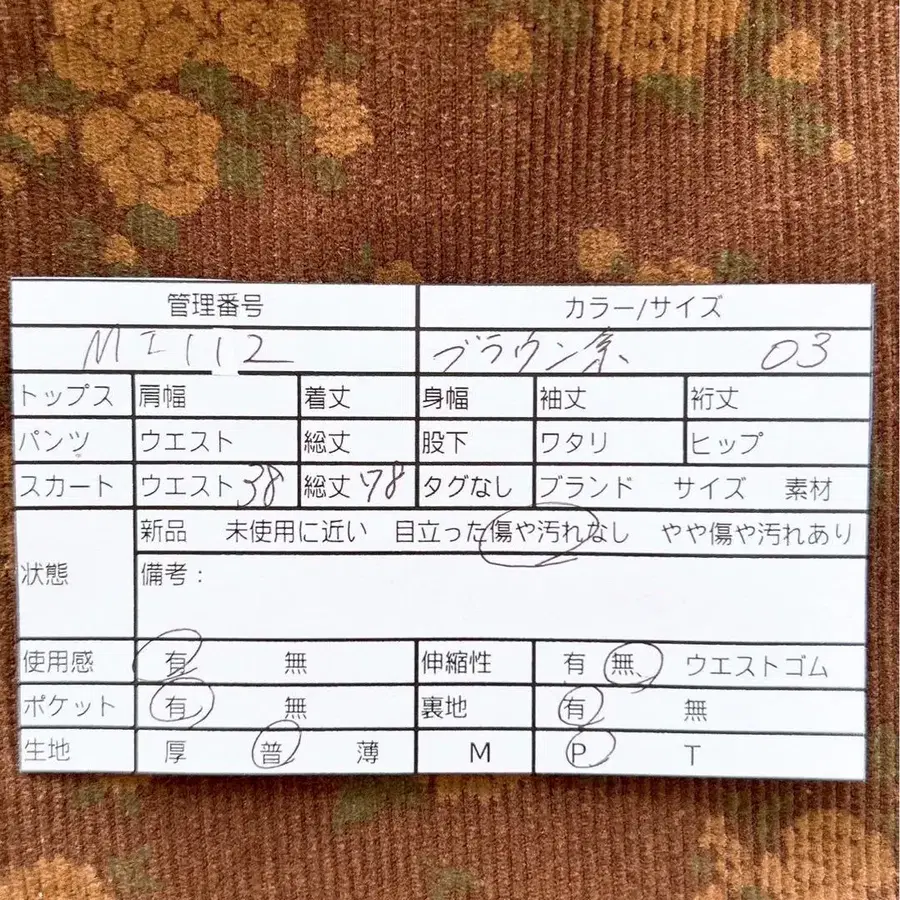 管理番号 カラー/サイズ
MI112 ブラウン系 03
トップス 肩幅 着丈 身幅 袖丈 裄丈
パンツ ウエスト 総丈 股下 ワタリ ヒップ
スカート ウエスト 38 総丈 78 タグなし ブランド サイズ 素材
新品 未使用に近い 目立った傷や汚れなし やや傷や汚れあり
状態 備考:
使用感 有 無 伸縮性 有 無 ウエストゴム
ポケット 有 無 裏地 有 無
生地 厚 普 薄 M P T